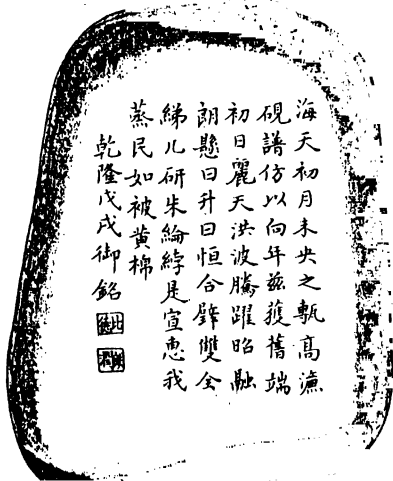 海天初月未央之甎高濂
硯譜仿以向年茲獲舊端
初日麗天洪波騰躍昭融
朗懸曰升曰恒合璧雙全
綈几研朱綸綍是宣惠我
蒸民如被黃棉
乾隆戊戌御銘
比德
朗潤